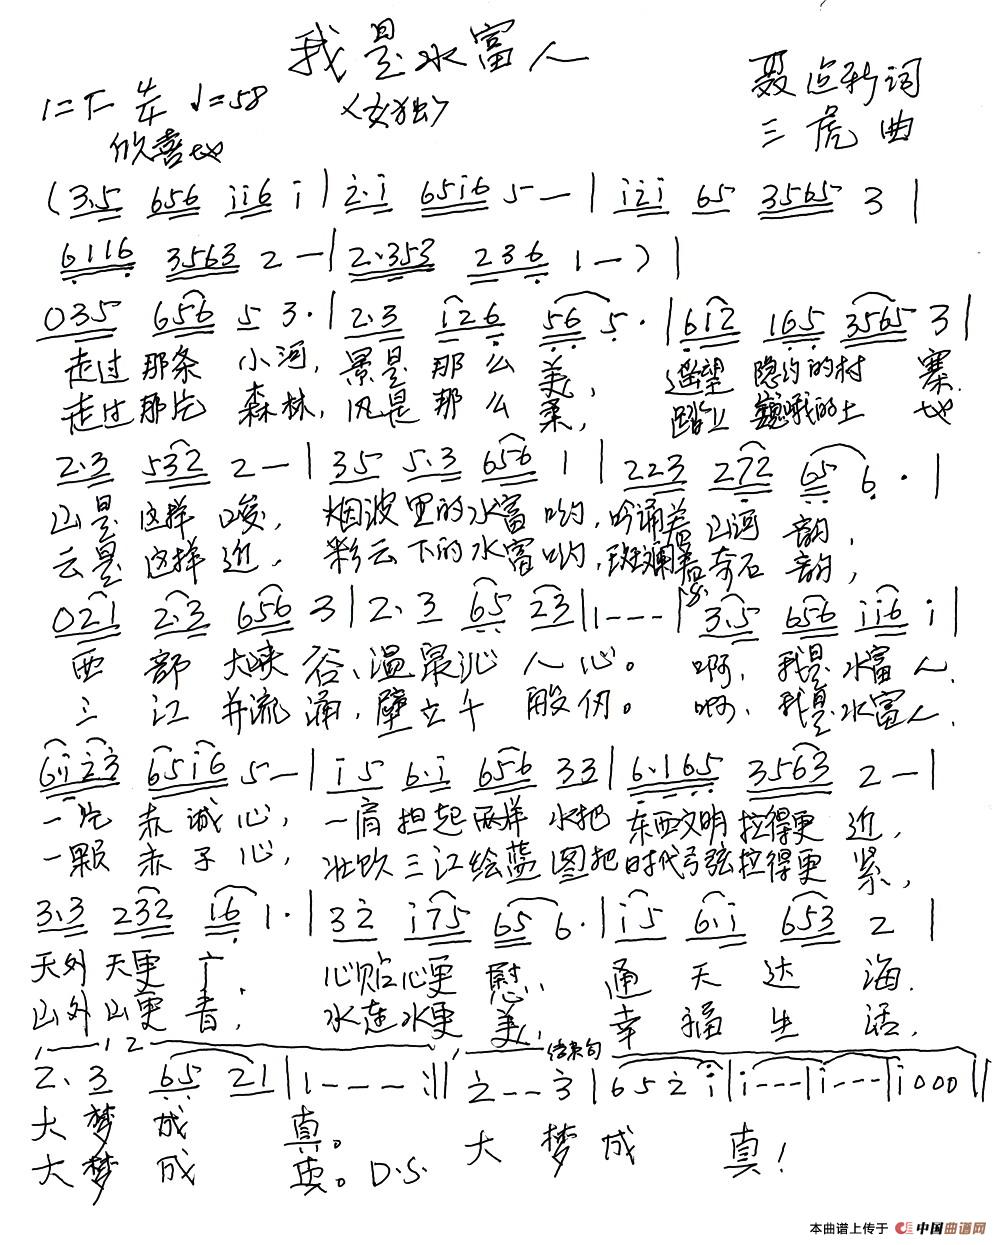 我是水富人
1=F 4/4 ♩=58
〈女独〉
聂应新词
欣喜地
三虎曲
(3.5 656 i i 6 i | 2.i 65i6 5 — | i 2 i 65 3565 3 |
6116 3563 2 — | 2.353 236 1 — ) |
035 656 5 3. | 2.3 i26 56 5. | 612 165 3565 3 |
走过那条 小河, 景是那么 美, 遥望 隐约的村 寨.
走过那片 森林, 风是那么 柔, 踏上 巍峨的土 地
2.3 532 2 — | 35 5.3 656 1 | 223 272 65 6. |
山是这样 峻, 烟波里的水富哟, 吟诵着山河 韵,
云是这样 近, 彩云下的水富哟, 斑斓着奇石 韵,
021 2.3 656 3 | 2.3 65 23 | 1 - - - | 3.5 656 i i 6 i |
西 部 大峡 谷、温泉沁人心。 啊, 我是水富人,
三 江 并流 涌, 壁立千般仞。 啊, 我是水富人,
6i23 65i6 5 — | i5 6.i 656 33 | 6.165 3563 2 — |
一片 赤诚心, 一肩担起两样 水把 东西文明拉得更 近,
一颗 赤子心, 壮饮三江绘蓝 图把时代弓弦拉得更 紧,
3.3 232 16 1. | 32 i75 65 6. | i5 6.i 653 2 |
天外天更 广, 心贴心更 慰, 通天达 海.
山外山更 青, 水连水更 美, 幸福生 活,
1. 2 结束句
2.3 65 21 | 1 - - - :‖ 2 - - 3 | 6 5 2 i | i - - - | i - - - | i 0 0 0 ‖
大梦成 真。 大梦成 真!
大梦成 真。D.S.
本曲谱上传于 中国曲谱网